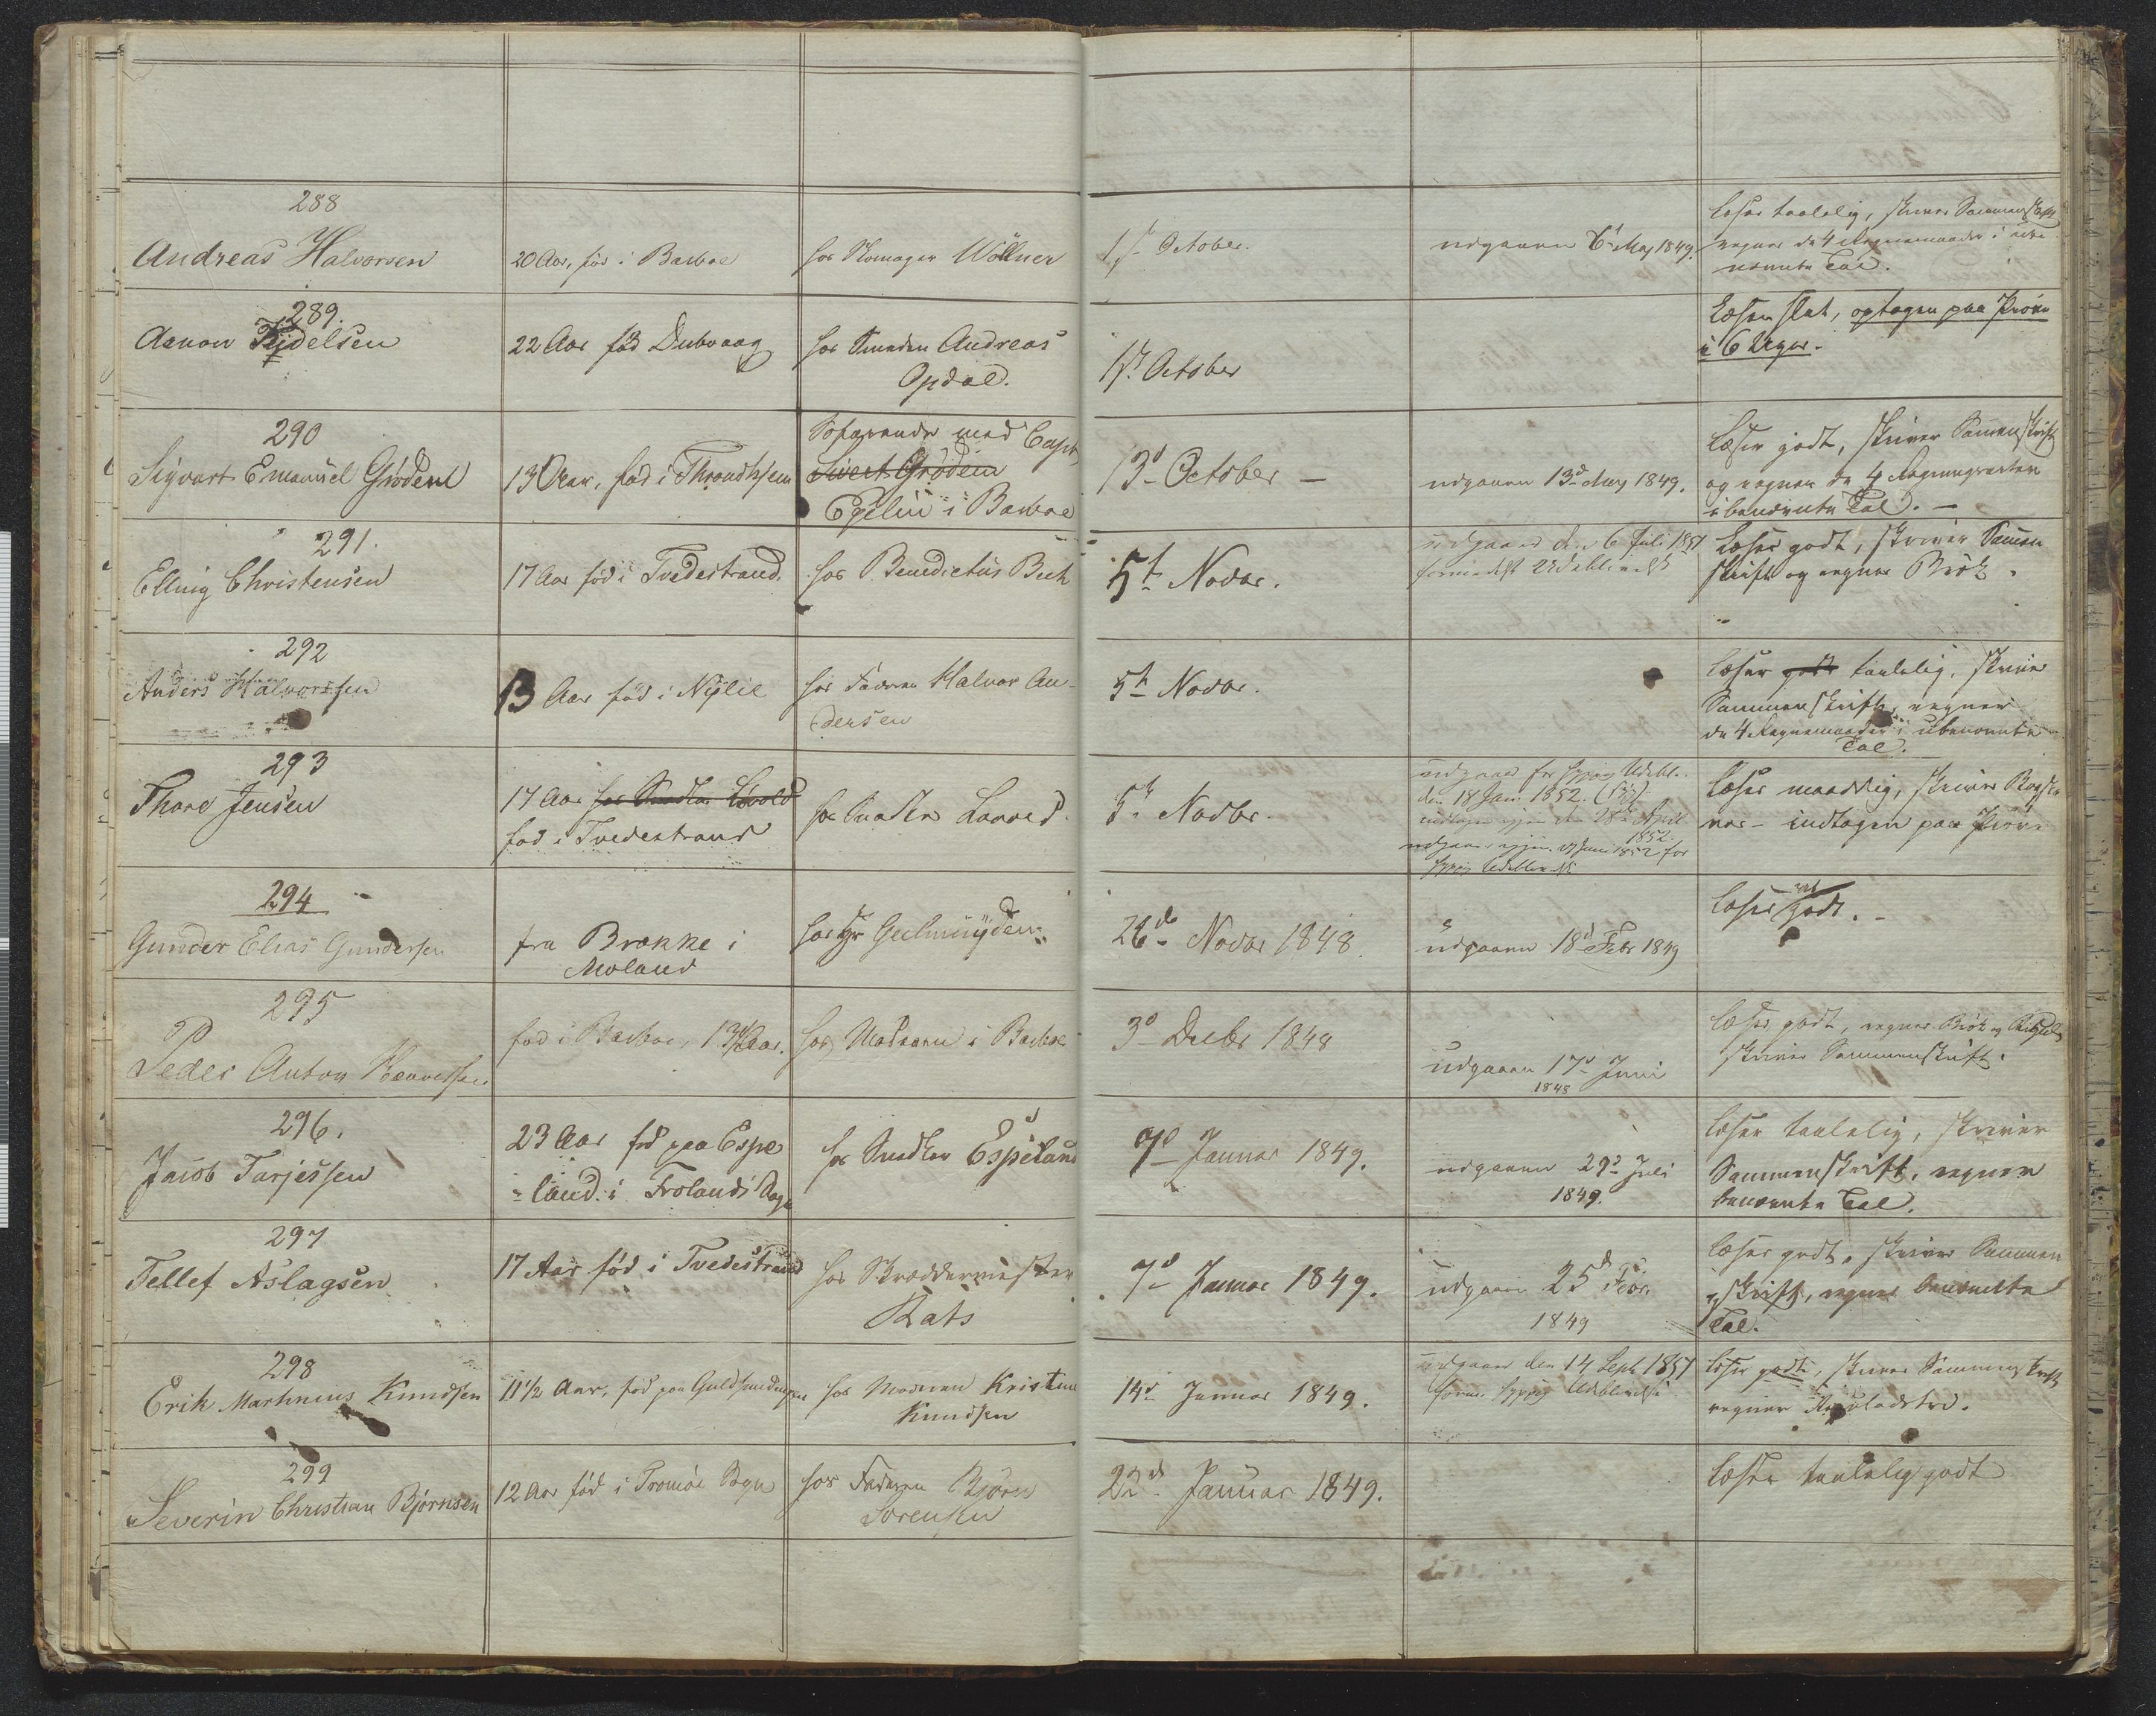 288
Andreas Halvorsen
20 Aar, född i Barboe
hos Skomager Wöllner
1ste October.
udgaaen 6te Maj 1849.
Læser taalelig, skriver Sammenskrift
regner de 4 Regnemaader i ube
nævnte Tal.
289.
Aanon Fidelsen
22 Aar fød Dubvaag
hos Smeden Andreas
Opdal.
1ste October
Læser slet, optagen paa Prøve
i 6 Uger.
290
Sigvart Emanuel Grødem
13 Aar, fød i Throndhjem
Søfarende med Capt
Sivert Grödem
Egelin i Barboe
13d October –
udgaaen 13d May 1849.
Læser godt, skriver Sammenskrift
og regner de 4 Regningsarter
i benævnte Tal. –
291.
Elling Christensen
17 Aar fød i Tvedestrand.
hos Benedictus Bech
5te Novbr.
udgaaed den 6 Juli 1851
formedelst Udeblivelse
Læser godt, skriver Sammen
skrift og regner Brök.
292
Anders Halvorssen
13 Aar fød i Nylie
hos Faderen Halvor An-
dersen
5te Novbr.
Læser godt taalelig, skriver
Sammenskrift, regner
de 4 Regnemaader i ubenævnte
Tal.
293
Thore Jensen
17 Aar hos Snedker Lövold
fød i Tvedestrand
hos Snedker Lovold.
5te Novbr.
udgaaed for hyppig Udebl.
den 18 Jan. 1852.
indtagen igjen den 28de April
1852.
udgaaed igjen Juni 1852 for
hyppig Udeblivelse
Læser maadelig, skriver Bogsta
ver – indtagen paa Prøve
294
Gunder Elias Gundersen
fra Brække i
Moland
hos Hr Gulmuyden
26de Novbr 1848.
udgaaen 18d Febr 1849
Læser godt. –
295
Peder Anton
fød i Barboe, 13½ Aar.
hos Moderen i Barboe
3d Decbr 1848
udgaaen 17d Juni
1848
Læser godt, regner Brök og
skriver Sammenskrift.
296.
Jacob Tarjessen
23 Aar fød paa Espe
land i Frolands Sogn
hos Snedker Espeland
7d Januar 1849.
udgaaen 29d Juli
1849.
Læser taalelig, skriver
Sammenskrift, regner
benævnte Tal.
297
Tellef Aslagsen
17 Aar fød i Tvedestrand
hos Skræddermester
Rats
7d Januar 1849.
udgaaen 25d Febr.
1849
Læser godt, skriver Sammen
skrift, regner benævnte
Tal.
298
Erik Marthnius Knudsen
11½ Aar, fød paa Guldsmedengen
hos Moderen Kristine
Knudsen
14d Januar 1849.
udgaaed den 14 Septb 1851
formed. hyppig Udeblivelse
Læser godt, skriver Sammenskrift
regner Reguladetri.
299
Severin Christian Bjørnsen
12 Aar fød i Tromöe Sogn
hos Faderen Björn
Sørensen
22d Januar 1849.
Læser taalelig godt